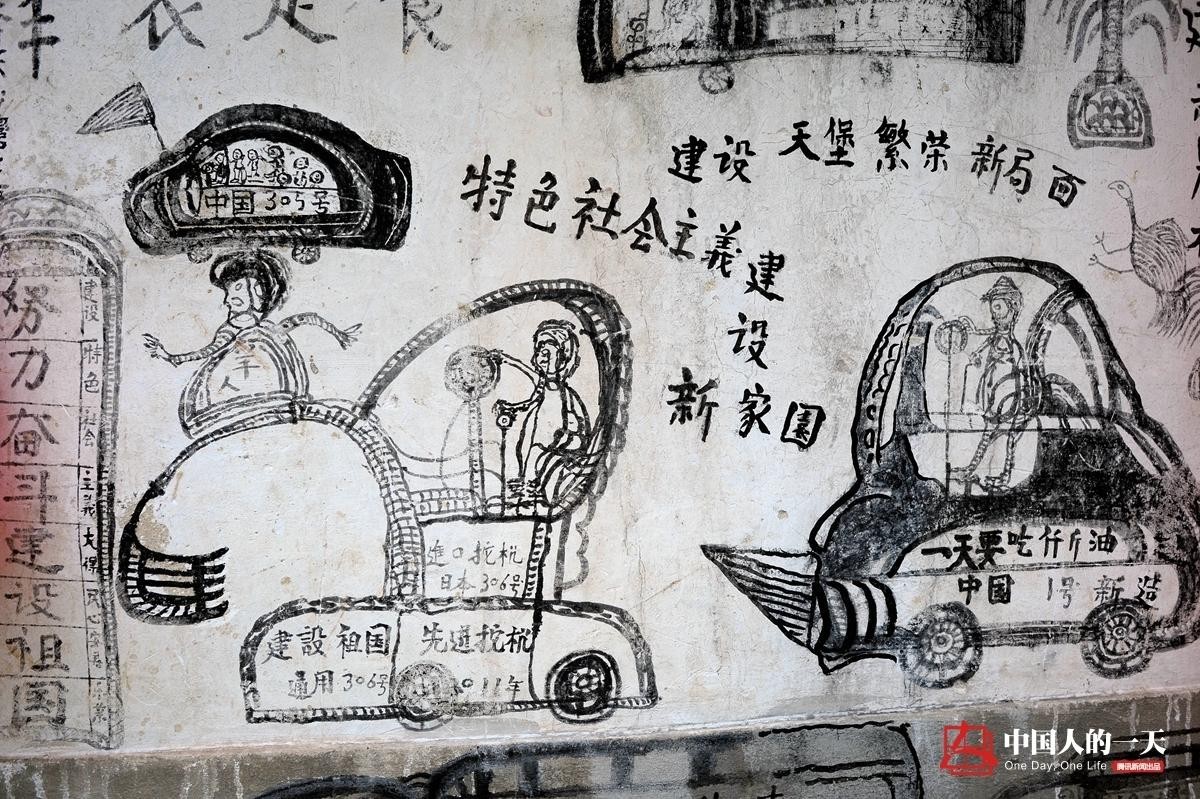 衣足食
中国305号
建设天堡繁荣新局面
特色社会主義建设新家园
努力奋斗建设祖国
建设特色社会主義大得民心
千人
進口挖杭
日本306号
建設祖国
先進挖杭
通用306号
11年
一天要吃仟斤油
中国1号新造
中国人的一天
One Day, One Life
腾讯新闻出品